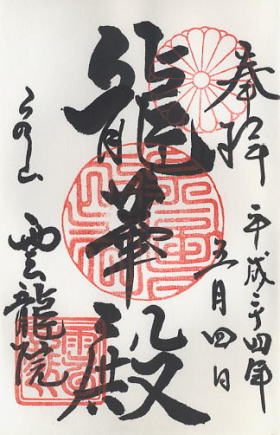 奉拝 平成二四年
五月四日
龍華殿
泉山 雲龍院